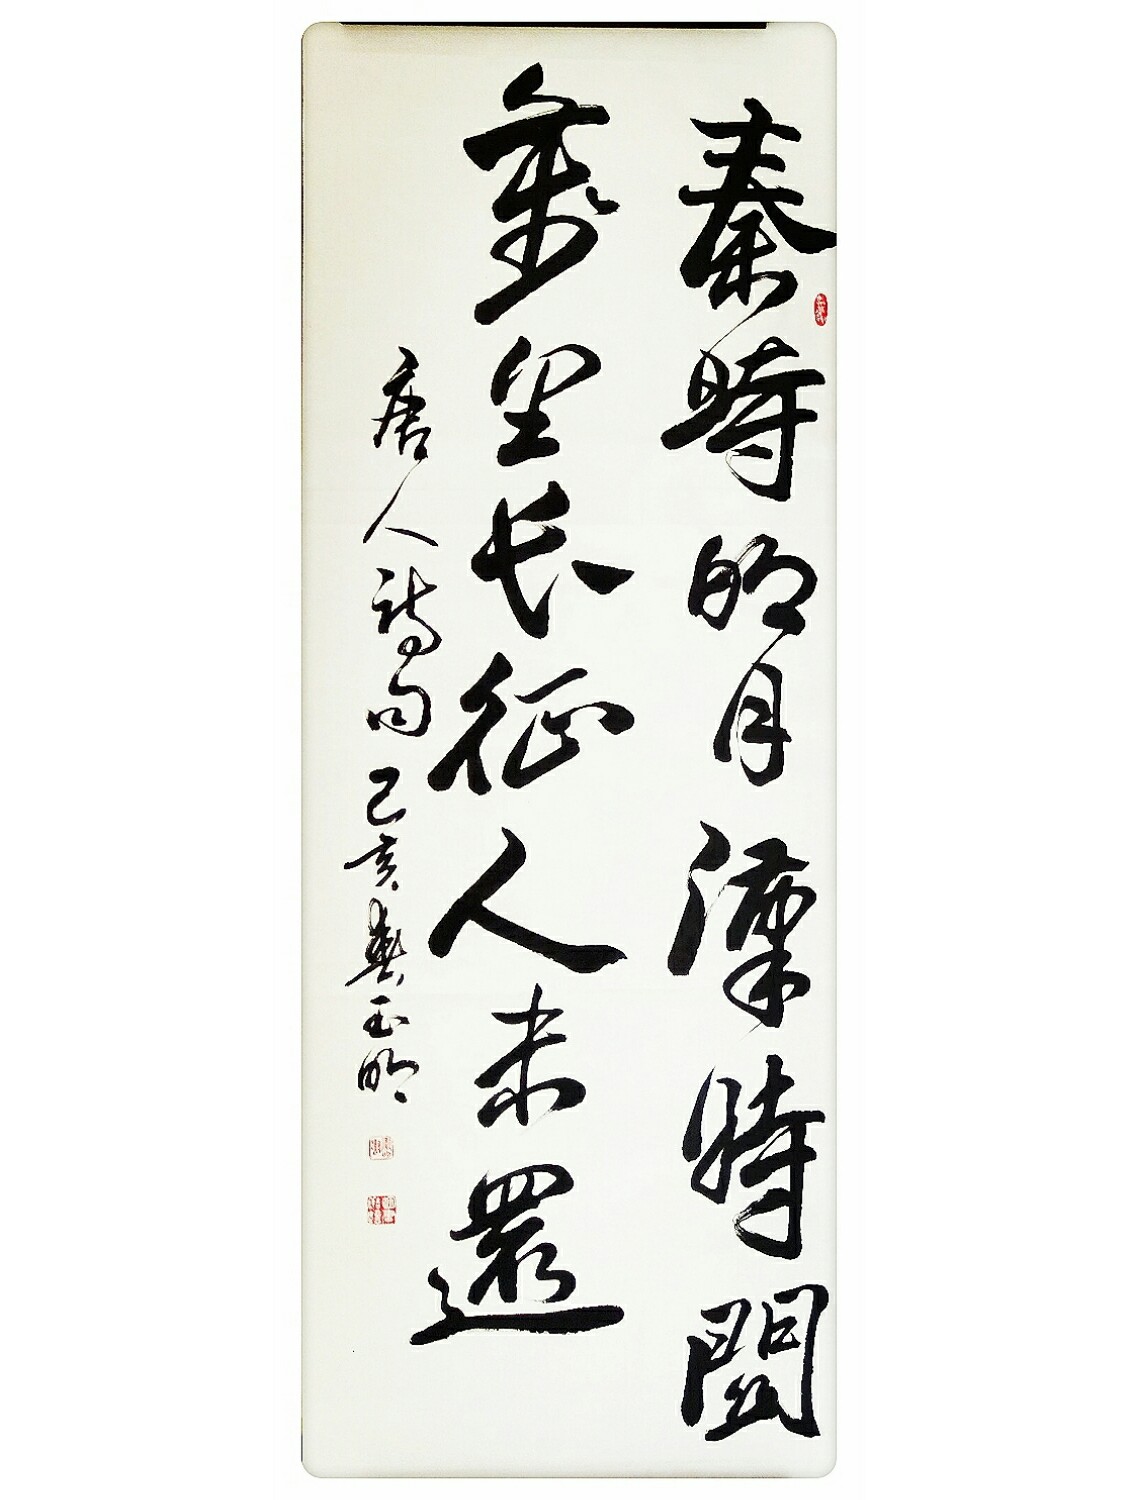 秦時明月漢時關
萬里长征人未還
唐人詩句己亥玉明